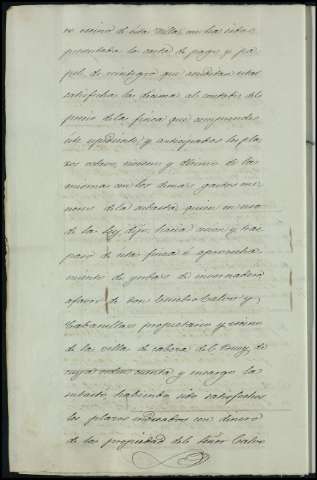 es vecino de esta Villa, me ha sido
presentada la carta de pago y pa-
pel de reintegro que acreditan estar
satisfecha la decima al contado del
precio de la finca que comprende
este espediente y anticipados los pla-
zos octavo, noveno y decimo de la
misma con los demas gastos me-
nores de la subasta, quien en uso
de la ley, dijo: hacia cesion y tras-
paso de esta finca ó aprovecha-
miento de yerbas de invernadero
a favor de Don Calvo y
Cabanillas propietario y vecino
de la villa de Cabeza del Buey, de
cuya orden, cuenta y encargo la
remató, habiendo sido satisfechos
los plazos indicados con dinero
de la propiedad del Señor Calvo